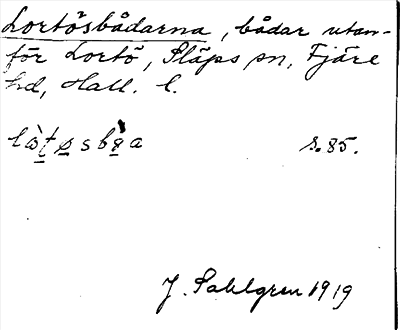 Lortösbådarna, bådar utan-
för Lortö, Släps sn, Fjäre
hd, Hall. l.
s. 85.
J. Sahlgren 1919